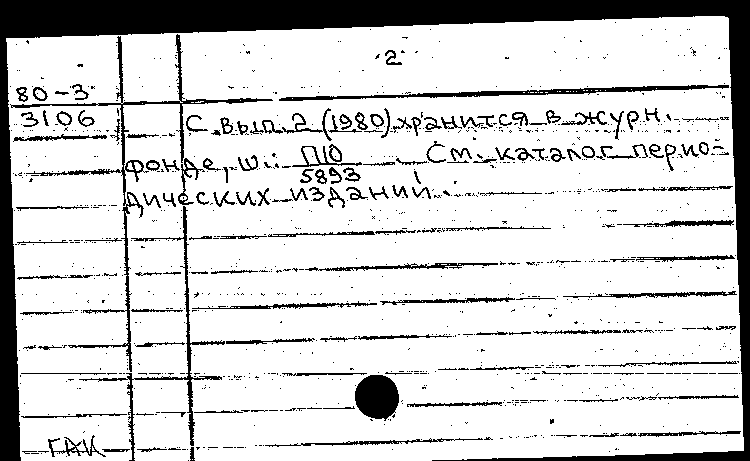 2
80-3
3106
С вып. 2 (1980) хранится в журн.
фонде, ш.: П10/5893. См. каталог перио-
дических изданий.
ГАК